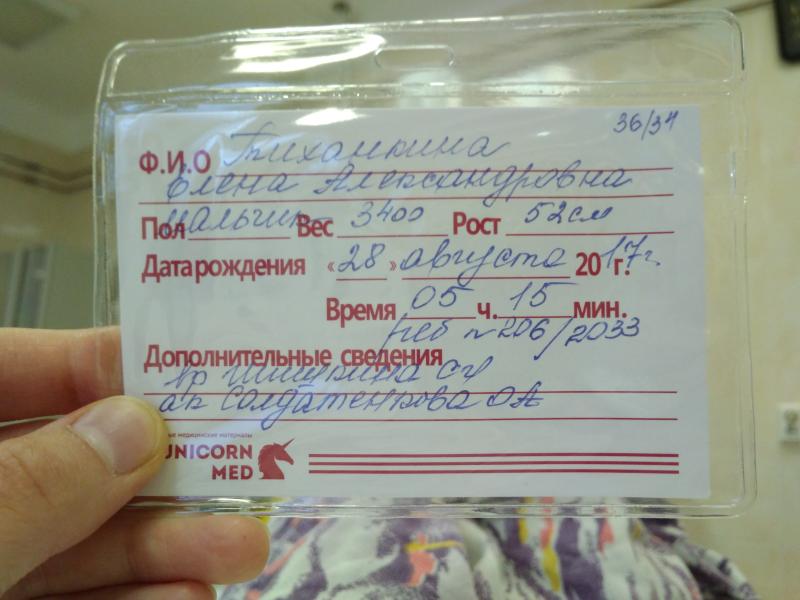 36/34
Ф.И.О Тиханкина
Елена Александровна
Пол Мальчик Вес 3400 Рост 52см
Дата рождения «28» августа 2017г.
Время 05 ч. 15 мин.
реб №206/2033
Дополнительные сведения
вр Шишкина СУ
ак Солдатенкова ОА
ные медицинские материалы
UNICORN
MED